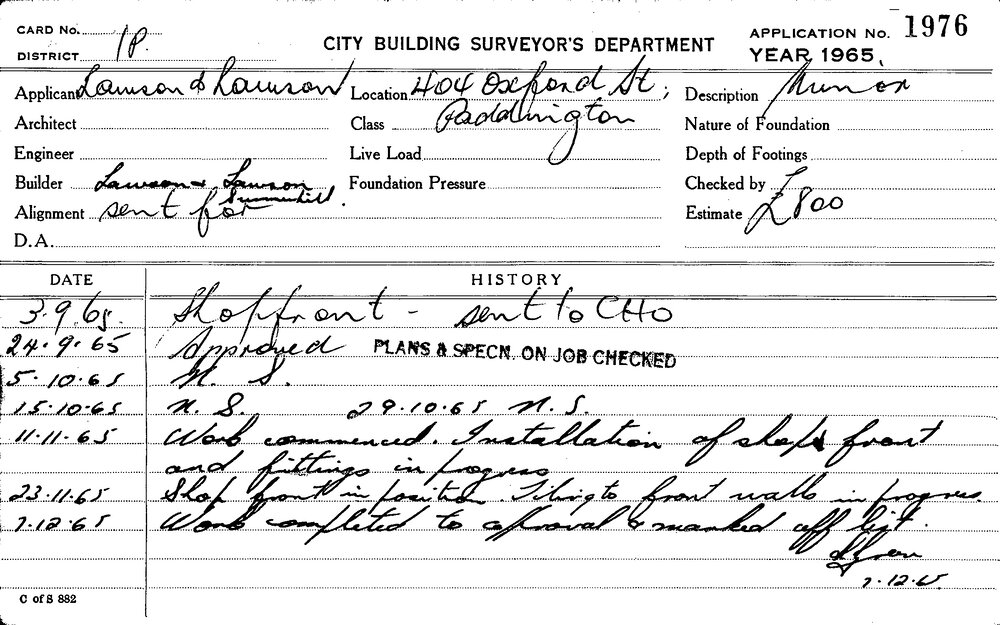 CARD No. 1P.
DISTRICT
CITY BUILDING SURVEYOR'S DEPARTMENT
APPLICATION No. 1976
YEAR 1965.
Applicant Lawson & Lawson
Location 404 Oxford St,
Description Minor
Architect
Class Paddington
Nature of Foundation
Engineer
Live Load
Depth of Footings
Builder Lawson & Lawson
Summerhill.
Foundation Pressure
Checked by
Alignment sent for
Estimate £800
D.A.
DATE HISTORY
3.9.65. Shopfront - sent to CHO
24.9.65 Approved PLANS & SPECN. ON JOB CHECKED
5.10.65 N. S.
15.10.65 N. S. 29.10.65 N. S.
11.11.65 Work commenced. Installation of shop front
and fittings in progress
23.11.65 Shop front in position. Tiling to front walls in progress.
7.12.65 Work completed to approval & marked off list.
7.12.65
C of S 882